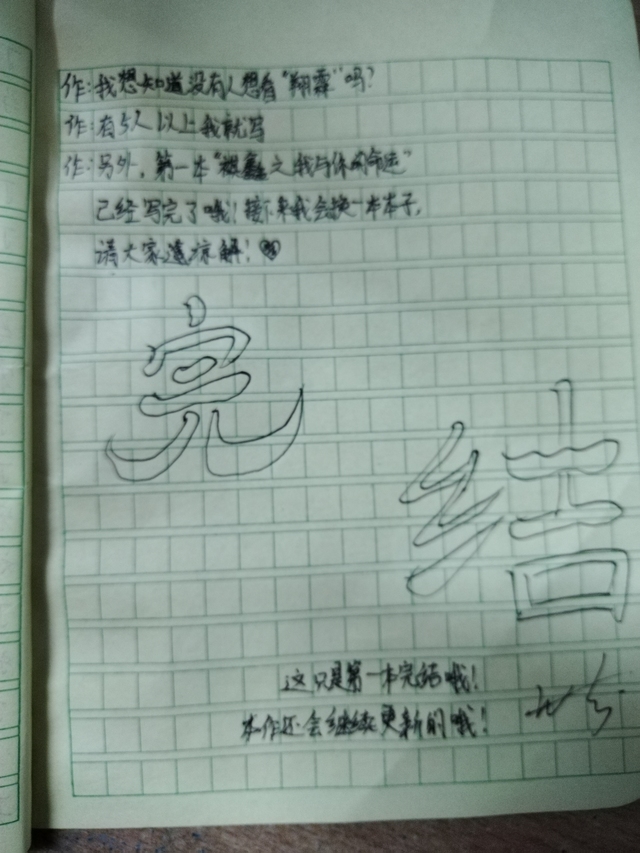 作:我想知道没有人想看"翔霖"吗?
作:有5人以上我就写
作:另外,第一本"之我与你的命运"
已经写完了哦!接下来我会换一本本子,
请大家谅解!
完
结
这只是第一本完结哦!
本作还会继续更新的哦!